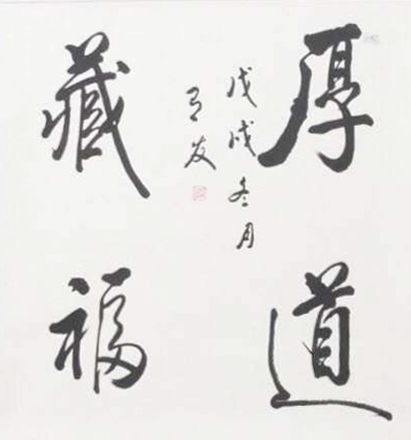 厚道
藏福
戊戌冬月